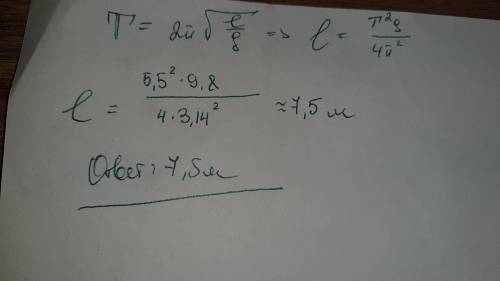 T = 2π√(l/g) => l = T²g/4π²
l = 5,5²·9,8/4·3,14² ≈ 7,5 м
Ответ: 7,5м